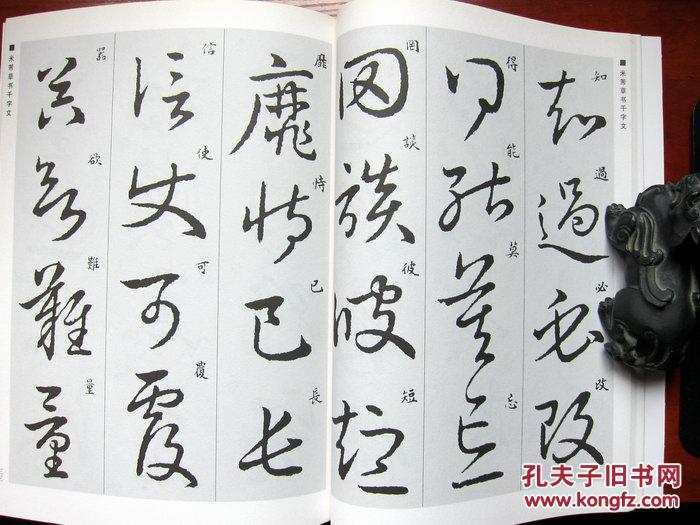 米芾草书千字文
知過必改
得能莫忘
罔談彼短
靡恃己長
信使可覆
器欲難量
米芾草书千字文
孔夫子旧书网
www.kongfz.com